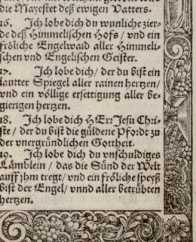 die Mayestet deß ewigen Vatters.
16. Ich lobe dich du wunliche zier-
de deß Himmelischen Hofs / vnd ein
fröliche Engelwaid aller Himmeli-
schen vnd Englischen Geister.
17. Ich lobe dich / der du bist ein
lautter Spiegel aller rainen hertzen /
vnd ein völlige ersettigung aller be-
gierigen hertzen.
18. Ich lobe dich HErr Jesu Chri-
ste / der du bist die güldene Pfordt zu
der vnergründlichen Gottheit.
19. Ich lobe dich du vnschuldiges
Lämblein / das die Sünd der Welt
auff jhm tregt / vnd ein fröliche speyß
bist der Engel / vnnd aller betrübten
hertzen.